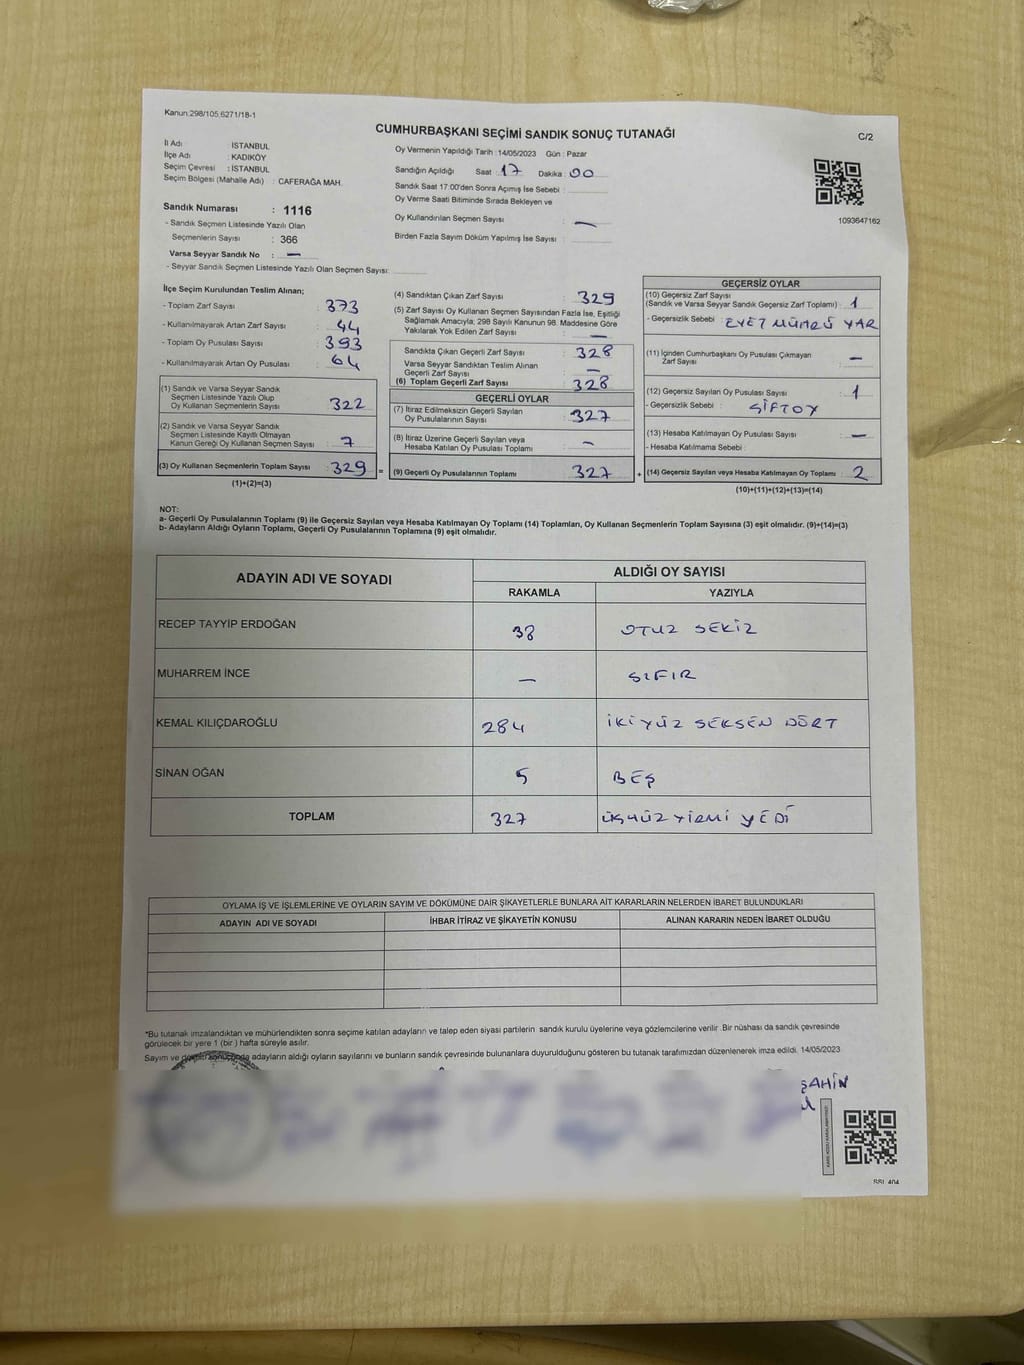 Kanun:298/105,6271/18-1
CUMHURBAŞKANI SEÇİMİ SANDIK SONUÇ TUTANAĞI
C/2
İl Adı : İSTANBUL
İlçe Adı : KADIKÖY
Seçim Çevresi : İSTANBUL
Seçim Bölgesi (Mahalle Adı) : CAFERAĞA MAH.
Sandık Numarası : 1116
- Sandık Seçmen Listesinde Yazılı Olan
Seçmenlerin Sayısı : 366
Varsa Seyyar Sandık No : —
- Seyyar Sandık Seçmen Listesinde Yazılı Olan Seçmen Sayısı:
Oy Vermenin Yapıldığı Tarih :14/05/2023 Gün : Pazar
Sandığın Açıldığı Saat : 17 Dakika : 00
Sandık Saat 17:00'den Sonra Açımış İse Sebebi :
Oy Verme Saati Bitiminde Sırada Bekleyen ve
Oy Kullandırılan Seçmen Sayısı : —
Birden Fazla Sayım Döküm Yapılmış İse Sayısı :
1093647162
İlçe Seçim Kurulundan Teslim Alınan;
- Toplam Zarf Sayısı : 373
- Kullanılmayarak Artan Zarf Sayısı : 44
- Toplam Oy Pusulası Sayısı : 393
- Kullanılmayarak Artan Oy Pusulası : 64
(1) Sandık ve Varsa Seyyar Sandık
Seçmen Listesinde Yazılı Olup
Oy Kullanan Seçmenlerin Sayısı : 322
(2) Sandık ve Varsa Seyyar Sandık
Seçmen Listesinde Kayıtlı Olmayan
Kanun Gereği Oy Kullanan Seçmen Sayısı : 7
(3) Oy Kullanan Seçmenlerin Toplam Sayısı : 329 =
(1)+(2)=(3)
(4) Sandıktan Çıkan Zarf Sayısı : 329
(5) Zarf Sayısı Oy Kullanan Seçmen Sayısından Fazla İse, Eşitliği
Sağlamak Amacıyla; 298 Sayılı Kanunun 98. Maddesine Göre
Yakılarak Yok Edilen Zarf Sayısı : —
Sandıkta Çıkan Geçerli Zarf Sayısı : 328
Varsa Seyyar Sandıktan Teslim Alınan
Geçerli Zarf Sayısı : —
(6) Toplam Geçerli Zarf Sayısı : 328
GEÇERLİ OYLAR
(7) İtiraz Edilmeksizin Geçerli Sayılan
Oy Pusulalarının Sayısı : 327
(8) İtiraz Üzerine Geçerli Sayılan veya
Hesaba Katılan Oy Pusulası Toplamı : —
(9) Geçerli Oy Pusulalarının Toplamı : 327 +
GEÇERSİZ OYLAR
(10) Geçersiz Zarf Sayısı
(Sandık ve Varsa Seyyar Sandık Geçersiz Zarf Toplamı) : 1
- Geçersizlik Sebebi : EVET MÜHRÜ VAR
(11) İçinden Cumhurbaşkanı Oy Pusulası Çıkmayan
Zarf Sayısı : —
(12) Geçersiz Sayılan Oy Pusulası Sayısı : 1
- Geçersizlik Sebebi : ÇİFTOY
(13) Hesaba Katılmayan Oy Pusulası Sayısı : —
- Hesaba Katılmama Sebebi :
(14) Geçersiz Sayılan veya Hesaba Katılmayan Oy Toplamı : 2
(10)+(11)+(12)+(13)=(14)
NOT:
a- Geçerli Oy Pusulalarının Toplamı (9) ile Geçersiz Sayılan veya Hesaba Katılmayan Oy Toplamı (14) Toplamları, Oy Kullanan Seçmenlerin Toplam Sayısına (3) eşit olmalıdır. (9)+(14)=(3)
b- Adayların Aldığı Oyların Toplamı, Geçerli Oy Pusulalarının Toplamına (9) eşit olmalıdır.
ADAYIN ADI VE SOYADI
ALDIĞI OY SAYISI
RAKAMLA YAZIYLA
RECEP TAYYİP ERDOĞAN 38 OTUZ SEKİZ
MUHARREM İNCE — SIFIR
KEMAL KILIÇDAROĞLU 284 İKİYÜZ SEKSEN DÖRT
SİNAN OĞAN 5 BEŞ
TOPLAM 327 ÜÇYÜZ YİRMİ YEDİ
OYLAMA İŞ VE İŞLEMLERİNE VE OYLARIN SAYIM VE DÖKÜMÜNE DAİR ŞİKAYETLERLE BUNLARA AİT KARARLARIN NELERDEN İBARET BULUNDUKLARI
ADAYIN ADI VE SOYADI İHBAR İTİRAZ VE ŞİKAYETİN KONUSU ALINAN KARARIN NEDEN İBARET OLDUĞU
*Bu tutanak imzalandıktan ve mühürlendikten sonra seçime katılan adayların ve talep eden siyasi partilerin sandık kurulu üyelerine veya gözlemcilerine verilir .Bir nüshası da sandık çevresinde
görülecek bir yere 1 (bir ) hafta süreyle asılır.
Sayım ve adayların aldığı oyların sayılarını ve bunların sandık çevresinde bulunanlara duyurulduğunu gösteren bu tutanak tarafımızdan düzenlenerek imza edildi. 14/05/2023
ŞAHİN